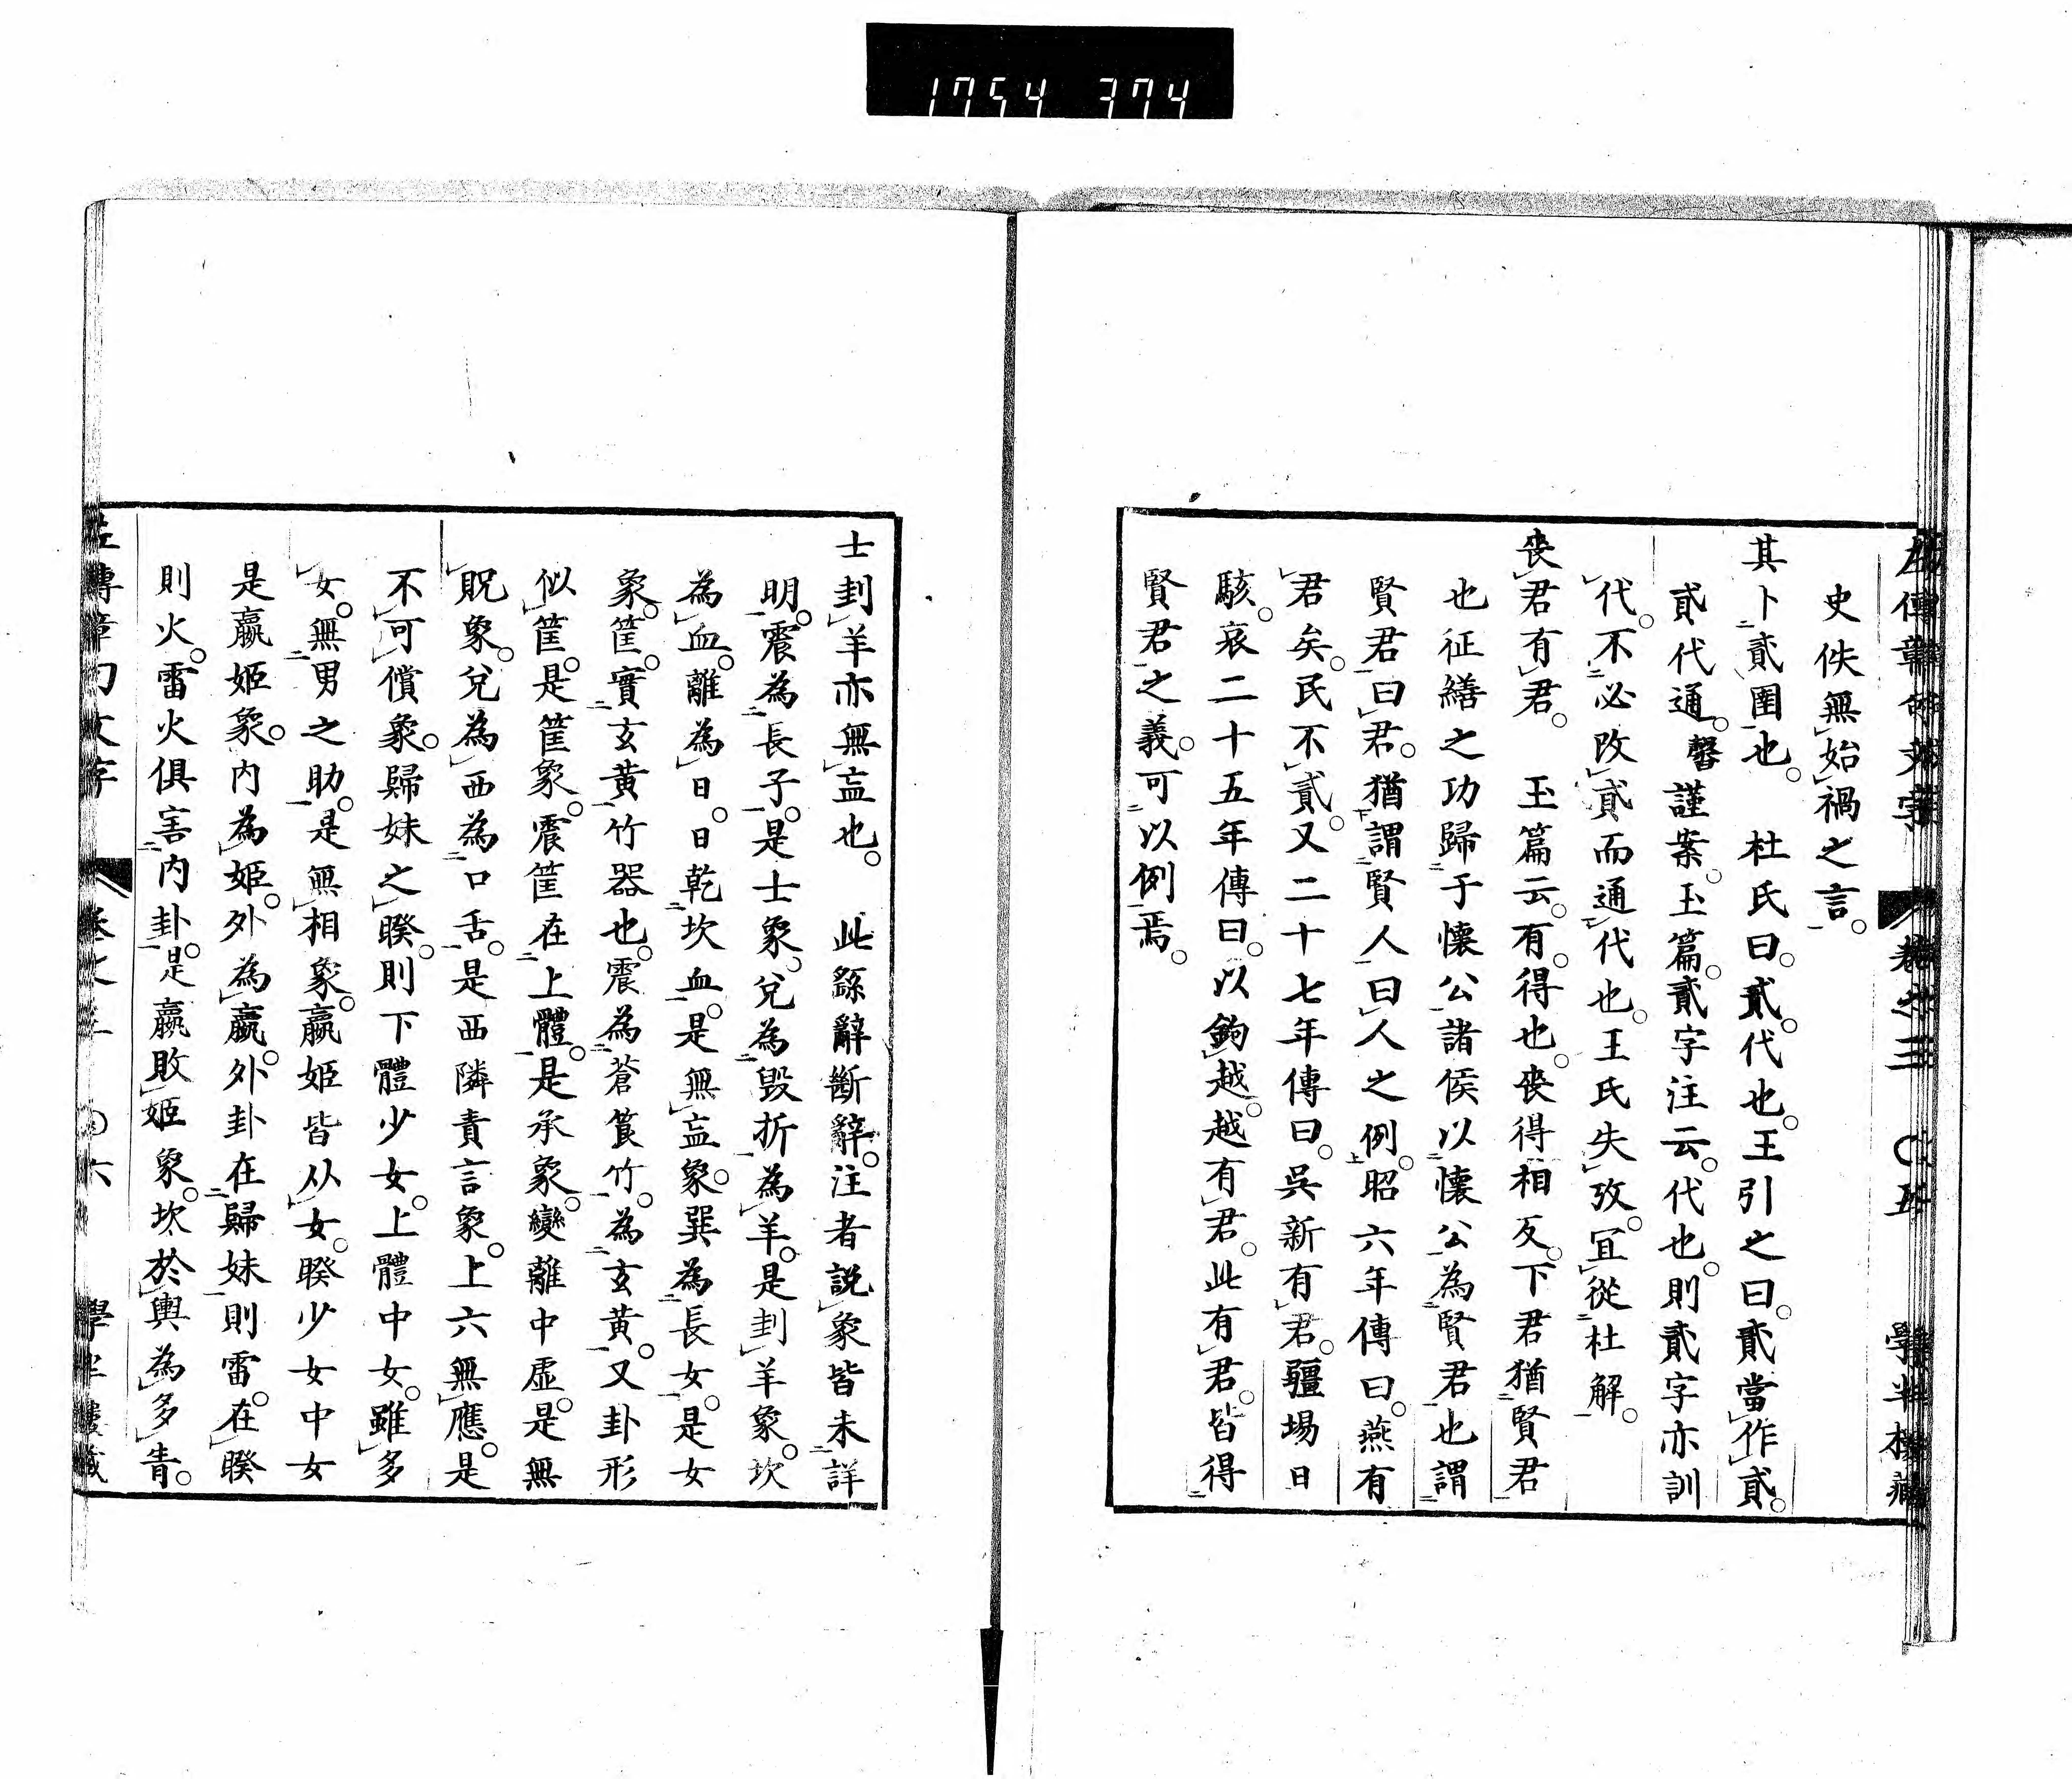 1754 374
左傳章句文字 卷之三 〇五 學半樓藏
史佚無始禍之言。
其卜貳圉也。 杜氏曰。貳。代也。王引之曰。貳當作貳。
貳代通。馨謹案。玉篇。貳字注云。代也。則貳字亦訓
代。不必改貳而通代也。王氏失攷。宜從杜解。
喪君有君。 玉篇云。有。得也。喪得相反。下君猶賢君
也征繕之功歸于懷公諸侯以懷公為賢君也謂
賢君曰君。猶謂賢人曰人之例。昭六年傳曰。燕有
君矣。民不貳。又二十七年傳曰。吳新有君。疆場日
駭。哀二十五年傳曰。以鉤越。越有君。此有君。皆得
賢君之義。可以例焉。
士刲羊亦無衁也。 此繇辭斷辭。注者說象皆未詳
明。震為長子。是士象。兌為毀折為羊。是刲羊象。坎
為血。離為日。日乾坎血。是無衁象。巽為長女。是女
象。筐。實玄黃竹器也。震為蒼筤竹。為玄黃。又卦形
似筐。是筐象。震筐在上體。是承象。變離中虛。是無
貺象。兌為西為口舌。是西隣責言象。上六無應。是
不可償象。歸妹之睽。則下體少女。上體中女。雖多
女。無男之助。是無相象。嬴姬皆从女。睽少女中女
是嬴姬象。內為姬。外為嬴。外卦在歸妹則雷。在睽
則火。雷火俱害內卦。是嬴敗姬象。坎於輿為多眚。
左傳章句文字 卷之三 〇六 學半樓藏